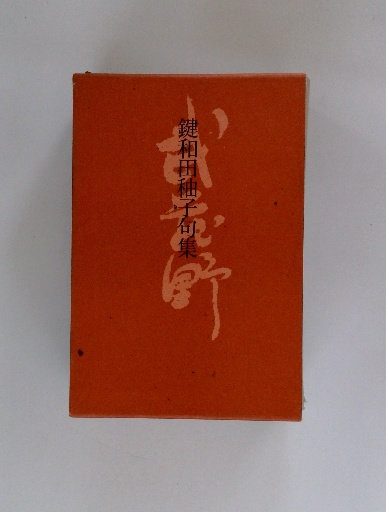 武蔵野
鍵和田秞子句集